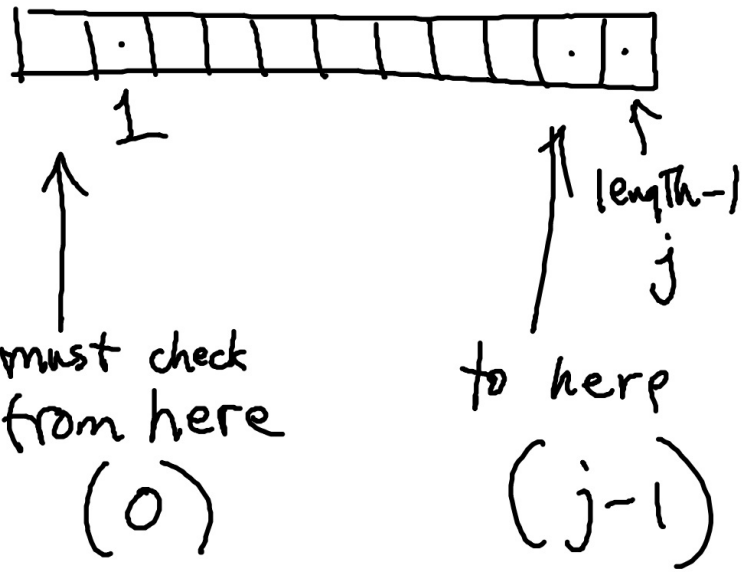 1
length-1
j
must check
from here
(0)
to here
(j-1)